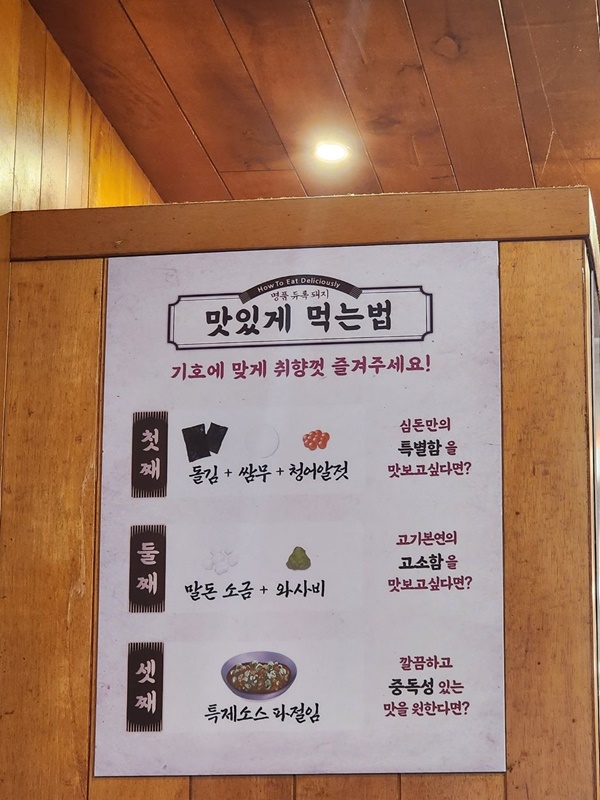 How To Eat Deliciously
명품 듀록 돼지
맛있게 먹는법
기호에 맞게 취향껏 즐겨주세요!
첫째
돌김 + 쌈무 + 청어알젓
심돈만의
특별함을
맛보고싶다면?
둘째
말돈 소금 + 와사비
고기본연의
고소함을
맛보고싶다면?
셋째
특제소스 파절임
깔끔하고
중독성 있는
맛을 원한다면?